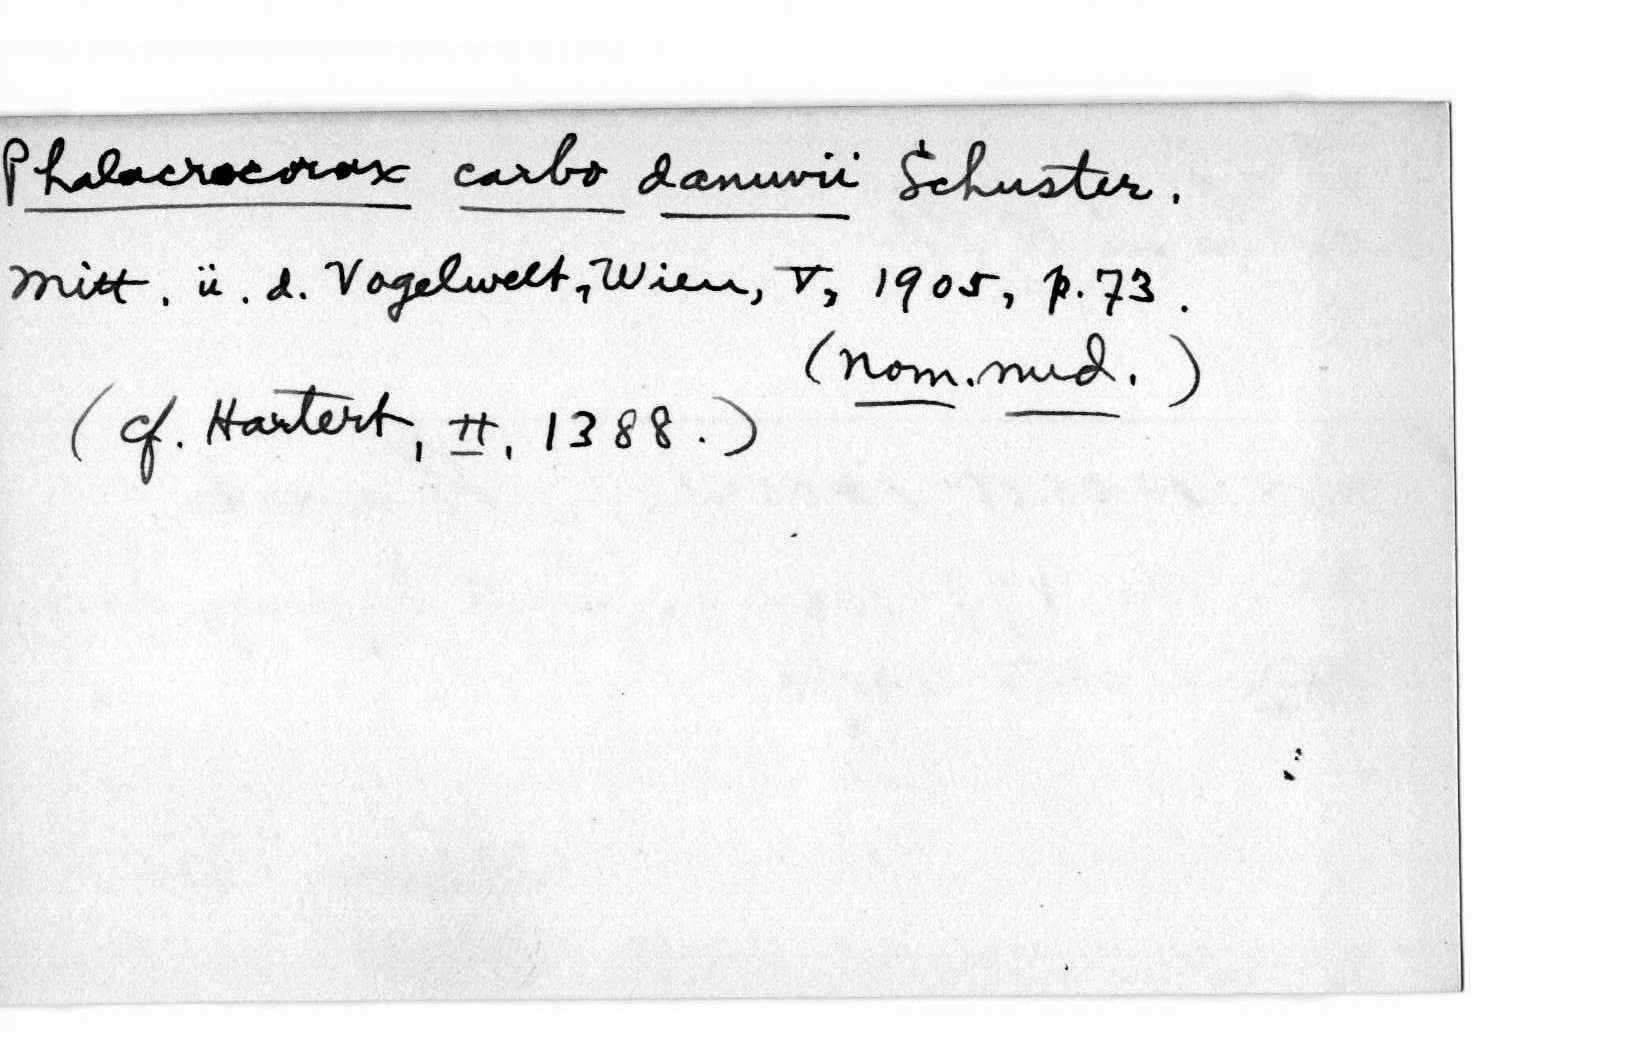 Phalacrocorax carbo danuvii Schuster.
Mitt. ü. d. Vogelwelt, Wien, V, 1905, p. 73.
(nom. nud.)
(cf. Hartert, II, 1388.)